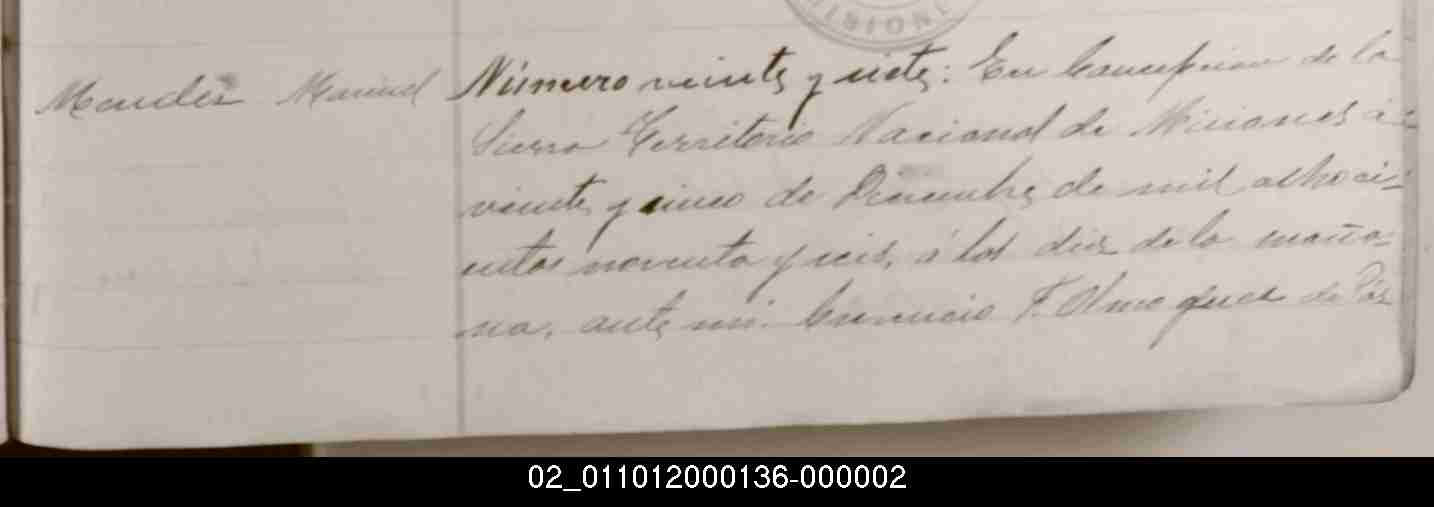 MISIONE
Mendez Manuel
Número veinte y siete: En Concepcion de la
Sierra Territorio Nacional de Misiones á
veinte y cinco de Diciembre de mil ochoci-
entos noventa y seis, á las diez de la maña-
na, ante mi F. de Paz
02_011012000136-000002